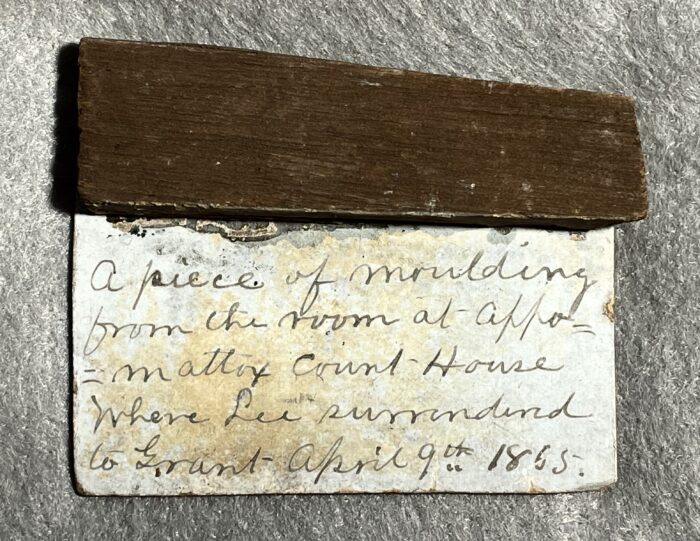 A piece of moulding
from the room at Appo=
=mattox Court House
where Lee surrendered
to Grant April 9th 1865.